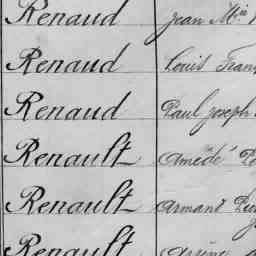 Renaud Jean Mie
Renaud Louis Fran
Renaud Paul Joseph
Renault Amédé
Renault Armand
Renault Arsène